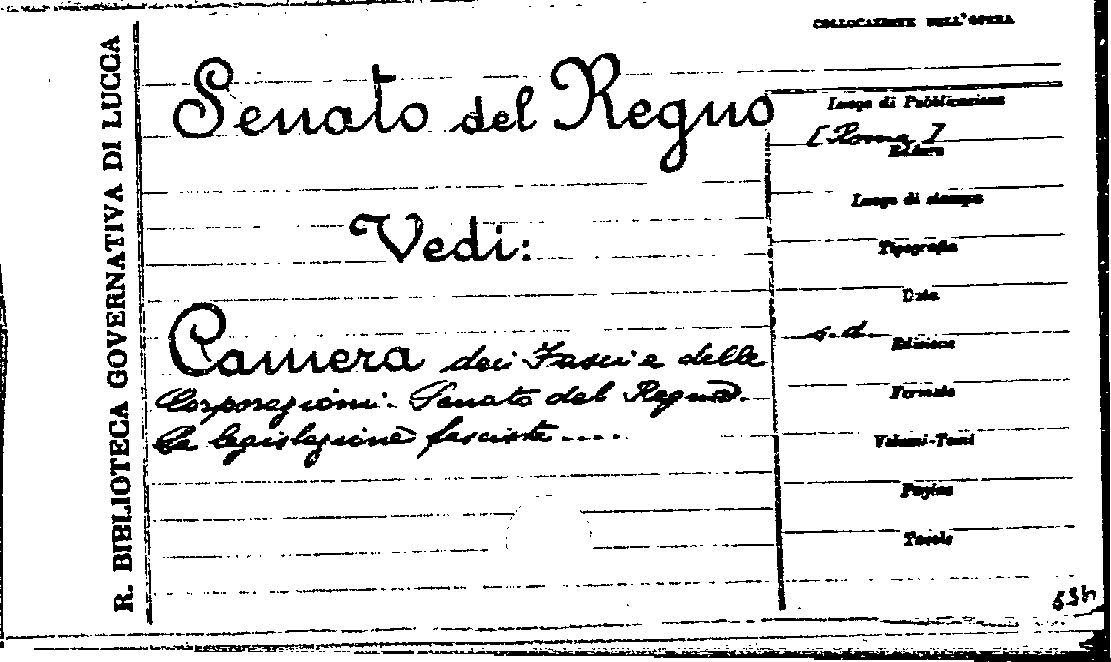 R. BIBLIOTECA GOVERNATIVA DI LUCCA
Senato del Regno
Vedi:
Camera dei Fasci e delle
Corporazioni. Senato del Regno.
La legislazione fascista....
COLLOCAZIONE DELL'OPERA
Luogo di Pubblicazione
[Roma]
Editore
Luogo di stampa
Tipografia
Data
s.d.
Edizione
Formato
Volumi-Tomi
Pagine
Tavole